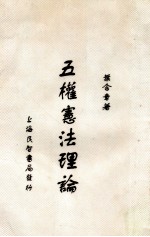 葉含章著
五權憲法理論
上海民智書局發行